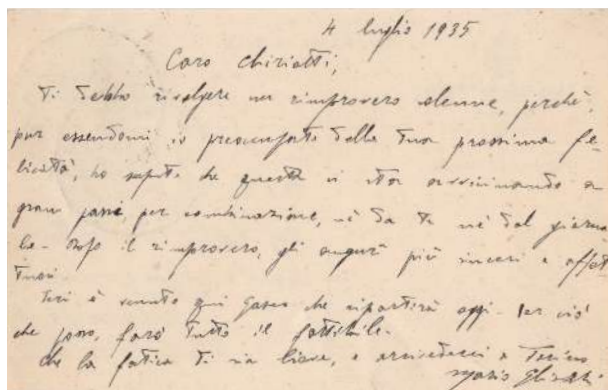 4 luglio 1935
Caro Chiriotti,
Ti debbo rivolgere un rimprovero solenne, perché,
pur essendomi io preoccupato della tua prossima fe-
licità, ho saputo che questa si sta avvicinando a
gran passi, per combinazione, né da te né dal giorna
le. Dopo il rimprovero, gli auguri più sinceri e affet
tuosi.
Ieri è venuto qui Gasco che ripartirà oggi. Per ciò
che posso, farò tutto il fattibile.
Che la fatica ti sia lieve, e arrivederci a Torino.
Mario